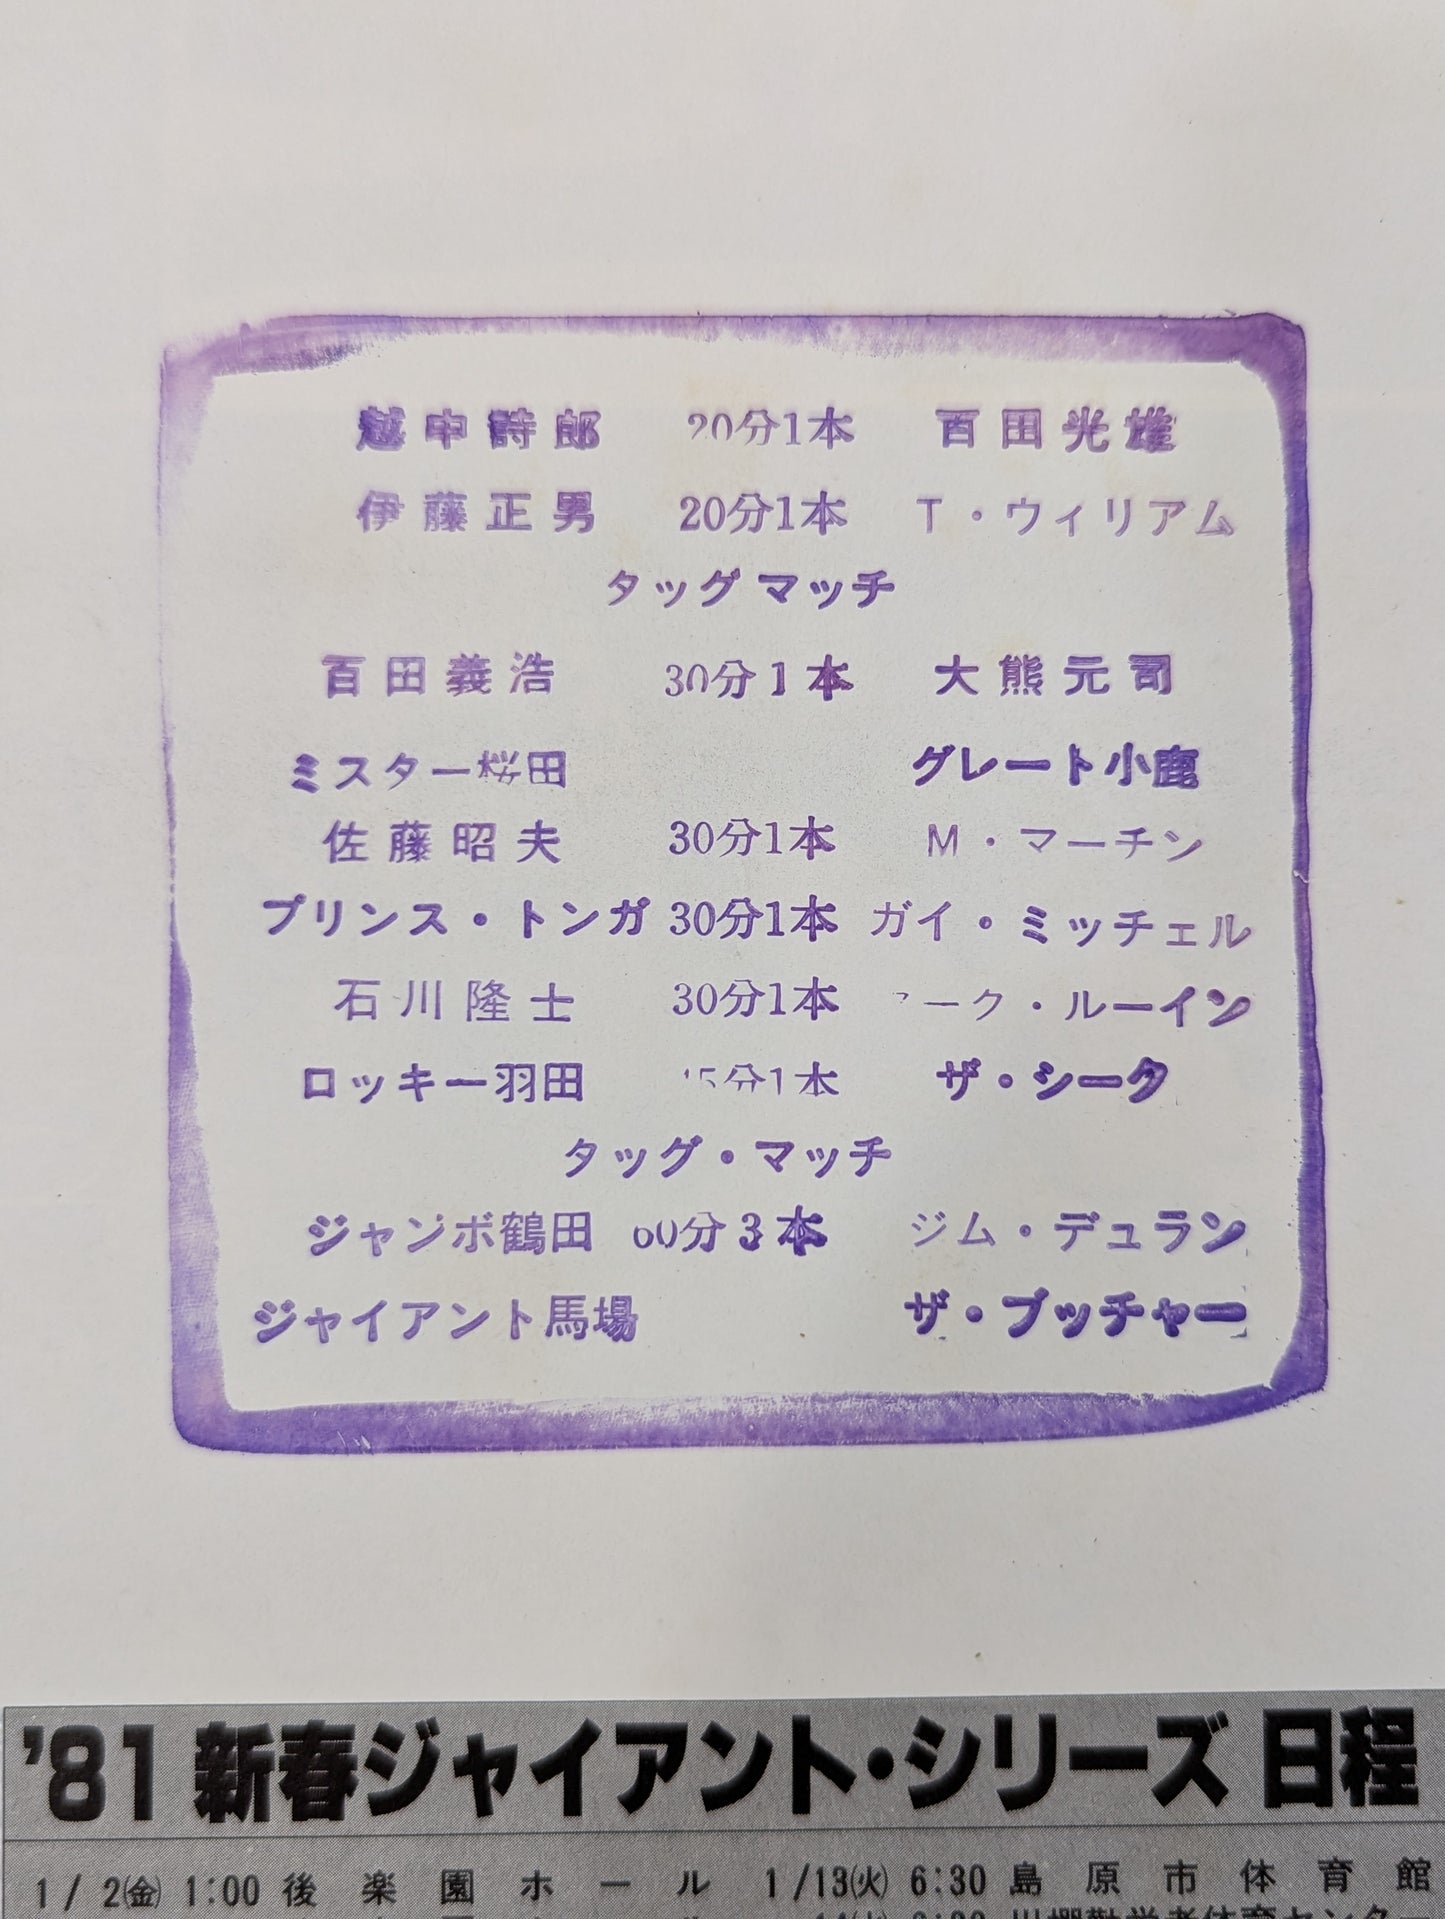 越中詩郎 20分1本 百田光雄
伊藤正男 20分1本 T・ウィリアム
タッグマッチ
百田義浩 30分1本 大熊元司
ミスター桜田 グレート小鹿
佐藤昭夫 30分1本 M・マーチン
プリンス・トンガ 30分1本 ガイ・ミッチェル
石川隆士 30分1本 マーク・ルーイン
ロッキー羽田 分1本 ザ・シーク
タッグ・マッチ
ジャンボ鶴田 60分3本 ジム・デュラン
ジャイアント馬場 ザ・ブッチャー
'81 新春ジャイアント・シリーズ 日程
1/2㈮ 1:00 後楽園ホール 1/13㈫ 6:30 島原市体育館